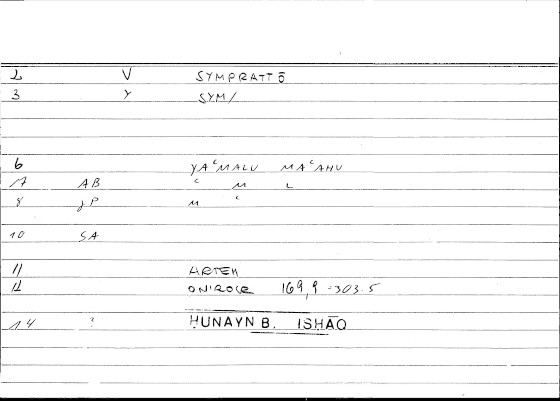 2 V SYMPRATTŌ
3 Y SYM/
6 YAʿMALU MAʿAHU
7 AB ʿ M L
8 JP M ʿ
10 SA
11 ARTEM
12 ONIROCR 169,9 = 303.5
14 ? HUNAYN B. ISHĀQ